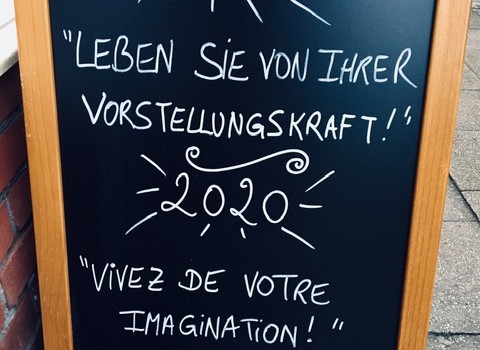 "LEBEN SIE VON IHRER
VORSTELLUNGSKRAFT!"
2020
"VIVEZ DE VOTRE
IMAGINATION!"